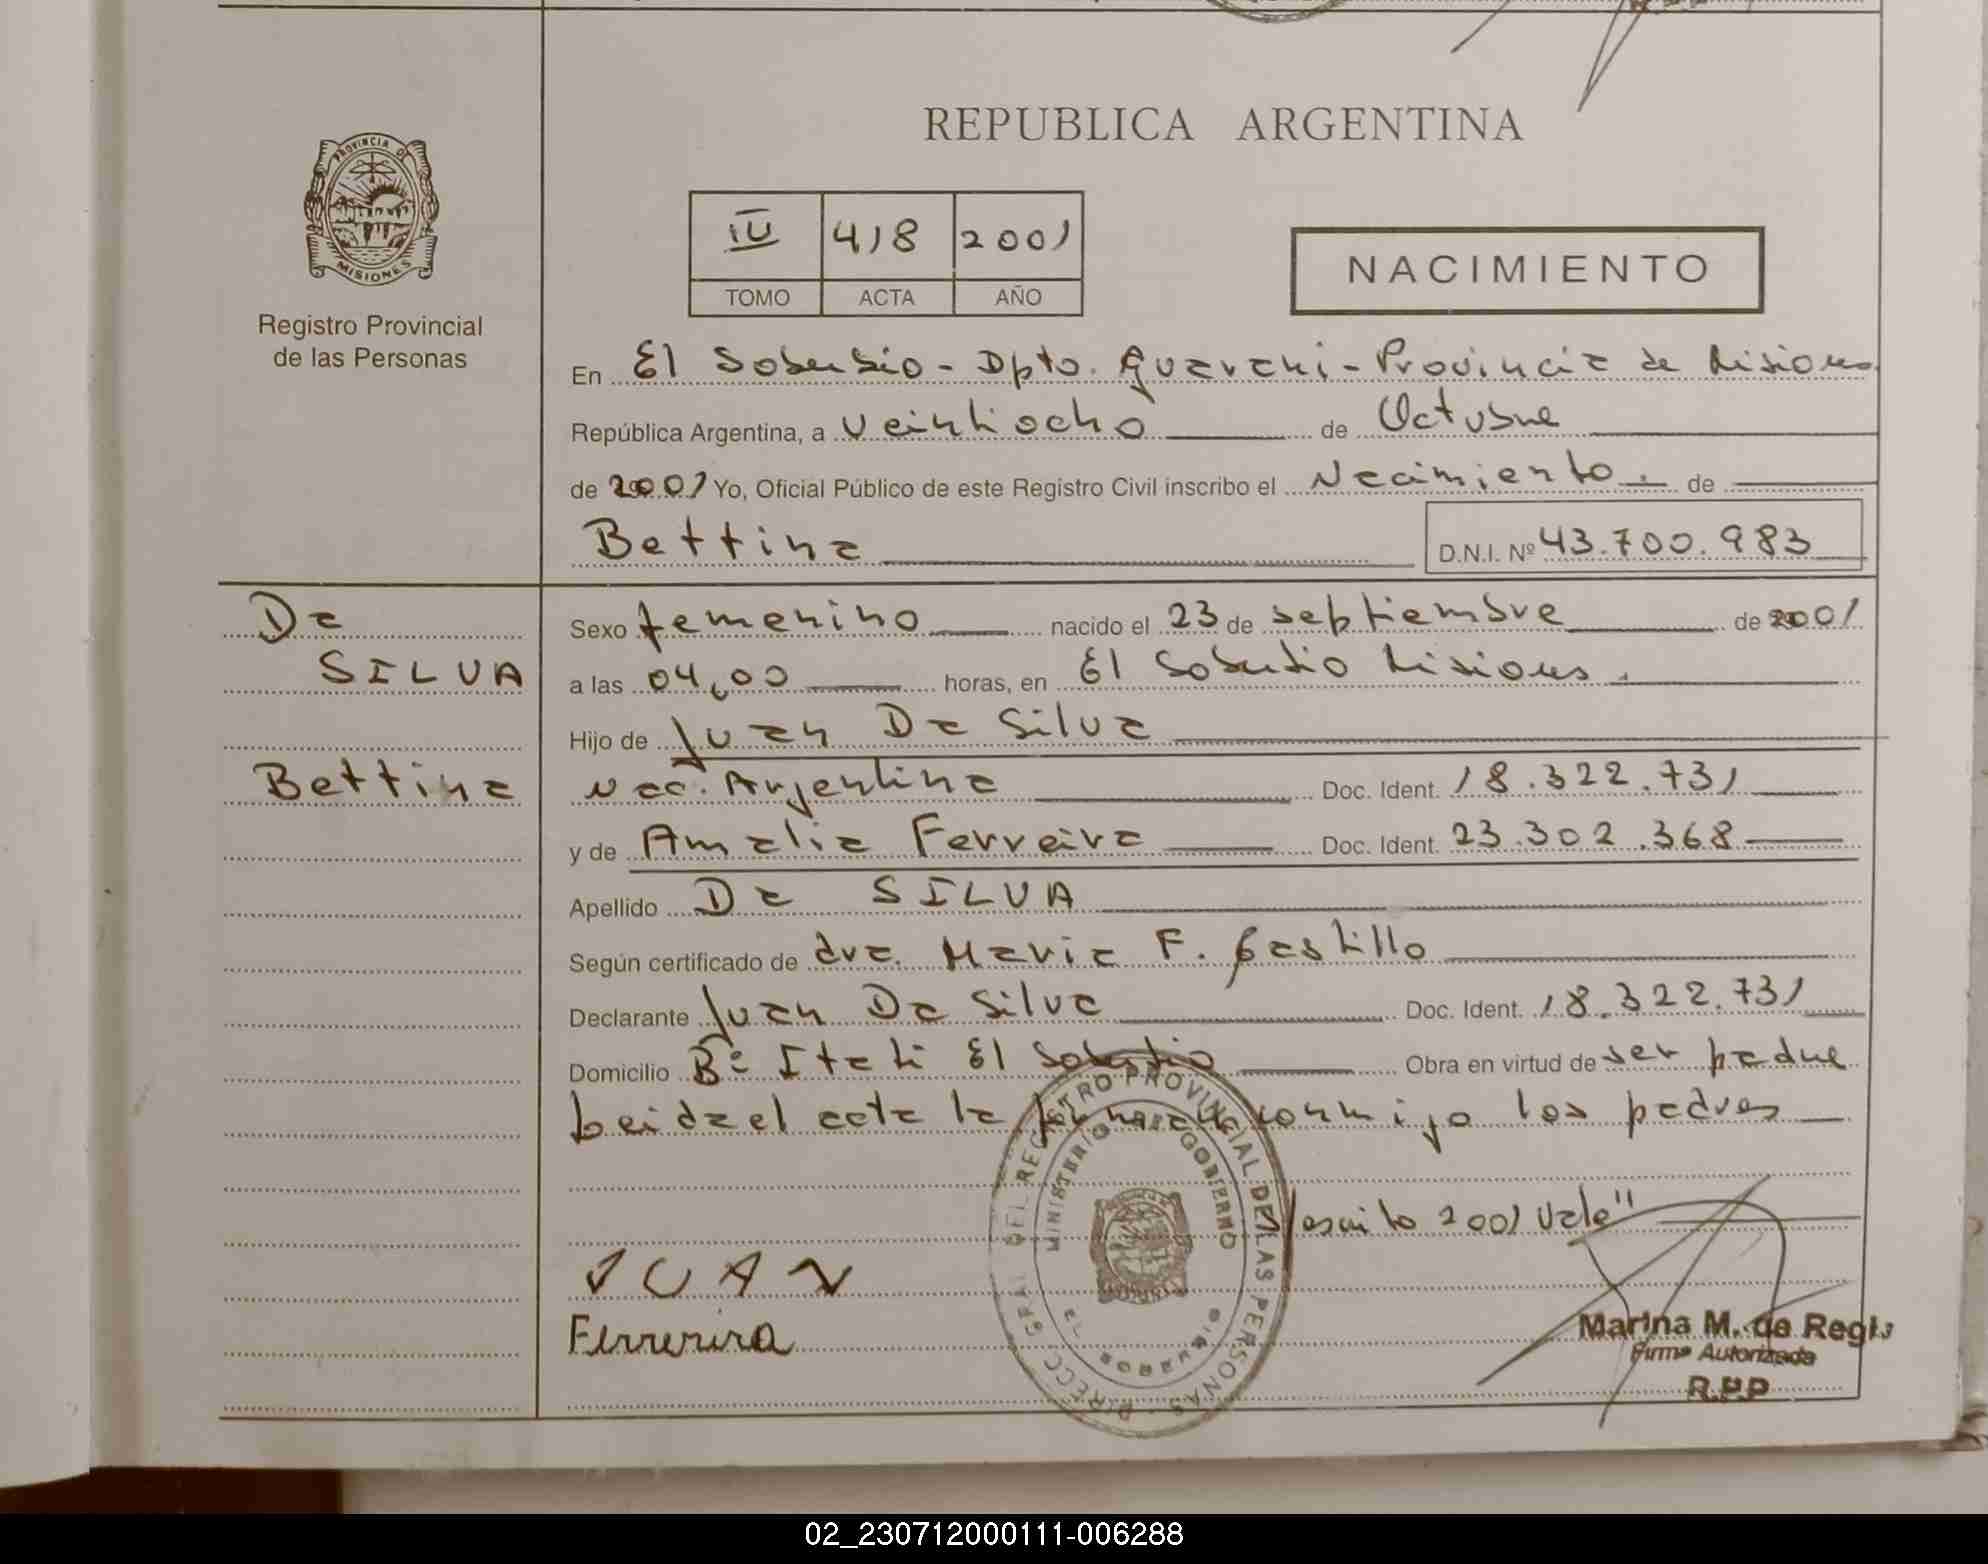 REPUBLICA ARGENTINA
PROVINCIA DE
MISIONES
Registro Provincial
de las Personas
IV 418 2001
TOMO ACTA AÑO
NACIMIENTO
En El Soberbio - Dpto. Guarani - Provincia de Misiones
República Argentina, a veintiocho de Octubre
de 2001 Yo, Oficial Público de este Registro Civil inscribo el Nacimiento. de
Bettina D.N.I. Nº 43.700.983
Da
SILVA
Bettina
Sexo femenino nacido el 23 de septiembre de 2001
a las 04,00 horas, en El Soberbio Misiones.
Hijo de Juan Da Silva
Nac. Argentina Doc. Ident. 18.322.731
y de Amalia Ferreira Doc. Ident. 23.302.368
Apellido Da SILVA
Según certificado de dra. Maria F. Castillo
Declarante Juan Da Silva Doc. Ident. 18.322.731
Domicilio Bº Itati El Soberbio Obra en virtud de ser padre
Leida el acta la firman conmigo los padres
2001 Vale"
JUAN
Ferrerira
DIRECC GRAL DEL REGISTRO PROVINCIAL DE LAS PERSONAS
MINISTERIO DE GOBIERNO
EL SOBERBIO
Marina M. de Regis
Firma Autorizada
R.P.P
02_230712000111-006288